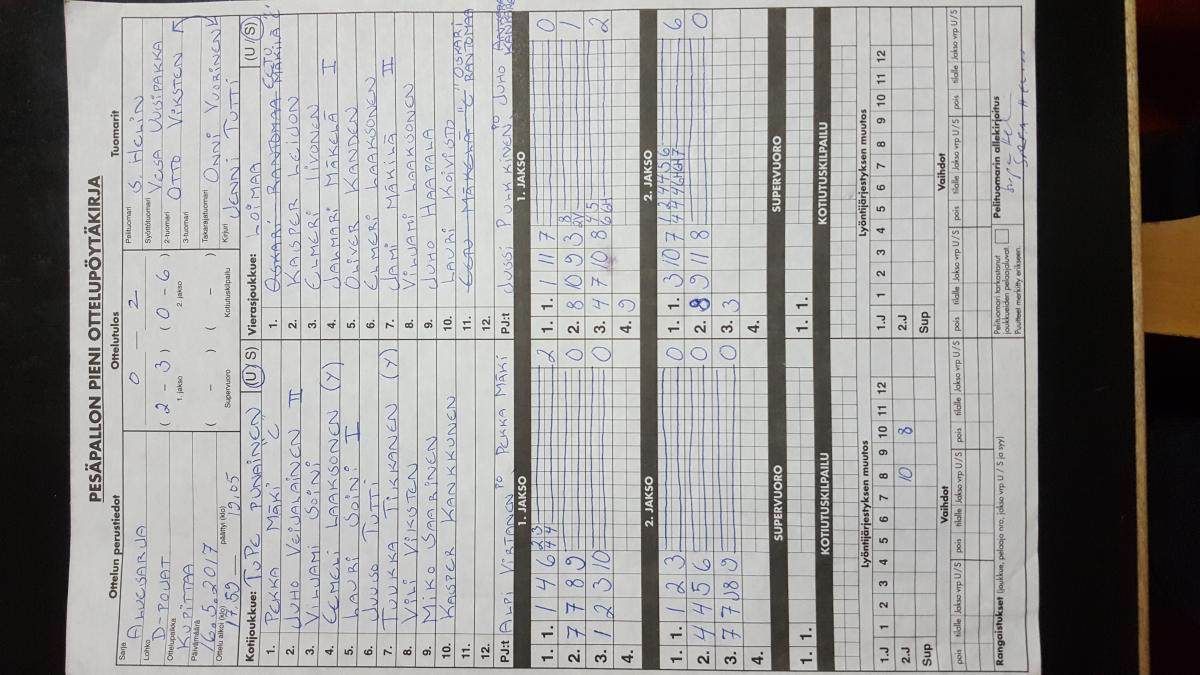 PESÄPALLON PIENI OTTELUPÖYTÄKIRJA
Ottelun perustiedot Ottelutulos Tuomarit
Sarja ALUESARJA
Lohko D-POJAT
Ottelupaikka KUPITTAA
Päivämäärä 16.5.2017
Ottelu alkoi (klo) 17.59 päättyi (klo) 19.05
0 — 2
( 2 - 3 ) ( 0 - 6 )
1. jakso 2. jakso
( - ) ( - )
Supervuoro Kotiutuskilpailu
Pelituomari S. HELIN
Syöttötuomari VESA UUSIPAKKA
2-tuomari OTTO VIKSTEN
3-tuomari
Takarajatuomari ONNI VUORINEN
Kirjuri JENNI TUTTI
Kotijoukkue: TUPE PUNAINEN (U S)
1. PEKKA MÄKI "C"
2. JUHO VEIJALAINEN II
3. VILJAMI SOINI
4. EEMELI LAAKSONEN (Y)
5. LAURI SOINI I
6. JUUSO TUTTI
7. TUUKKA TIKKANEN (Y)
8. VILI VIKSTEN
9. MIKO SAARINEN
10. KASPER KANKKUNEN
11.
12.
PJ:t ALPI VIRTANEN PO PEKKA MÄKI
Vierasjoukkue: LOIMAA (U S)
1. OSKARI RANTOMAA EETU MÄKILÄ
2. KAISPER LEIJON
3. ELMERI IIVONEN
4. JALMARI MÄKELÄ I
5. OLIVER KANDEN
6. ELMERI LAAKSONEN
7. JAMI MÄKILÄ II
8. VILJAMI LAAKSONEN
9. JUHO HAAPALA
10. LAURI KOIVISTO
11. EETU MÄKELÄ "C" OSKARI RANTOMAA
12.
PJ:t JUSSI PUHKKINEN PO JUHO
1. JAKSO
1. 1. 1 4 6 2 3 4 4 2
2. 7 7 8 9 0
3. 1 2 3 10 0
4.
1. JAKSO
1. 1. 1 11 7 0
2. 8 10 9 3 1
3. 4 7 10 8 2
4. 9
2. JAKSO
1. 1. 1 2 3 0
2. 4 4 5 6 0
3. 7 7 8 9 0
4.
2. JAKSO
1. 1. 3 10 7 6
2. 8 9 11 8 0
3. 3
4.
SUPERVUORO
1. 1.
SUPERVUORO
1. 1.
KOTIUTUSKILPAILU
KOTIUTUSKILPAILU
Lyöntijärjestyksen muutos
1 2 3 4 5 6 7 8 9 10 11 12
1.J
2.J 10 8
Sup
Lyöntijärjestyksen muutos
1 2 3 4 5 6 7 8 9 10 11 12
1.J
2.J
Sup
Vaihdot
pois tilalle Jakso vrp U/S pois tilalle Jakso vrp U/S pois tilalle Jakso vrp U/S
Vaihdot
pois tilalle Jakso vrp U/S pois tilalle Jakso vrp U/S pois tilalle Jakso vrp U/S
Rangaistukset (joukkue, pelaaja nro, jakso vrp U / S ja syy)
Pelituomari tarkastanut
joukkueiden pelaajaluvat
Puutteet merkitty erikseen.
Pelituomarin allekirjoitus